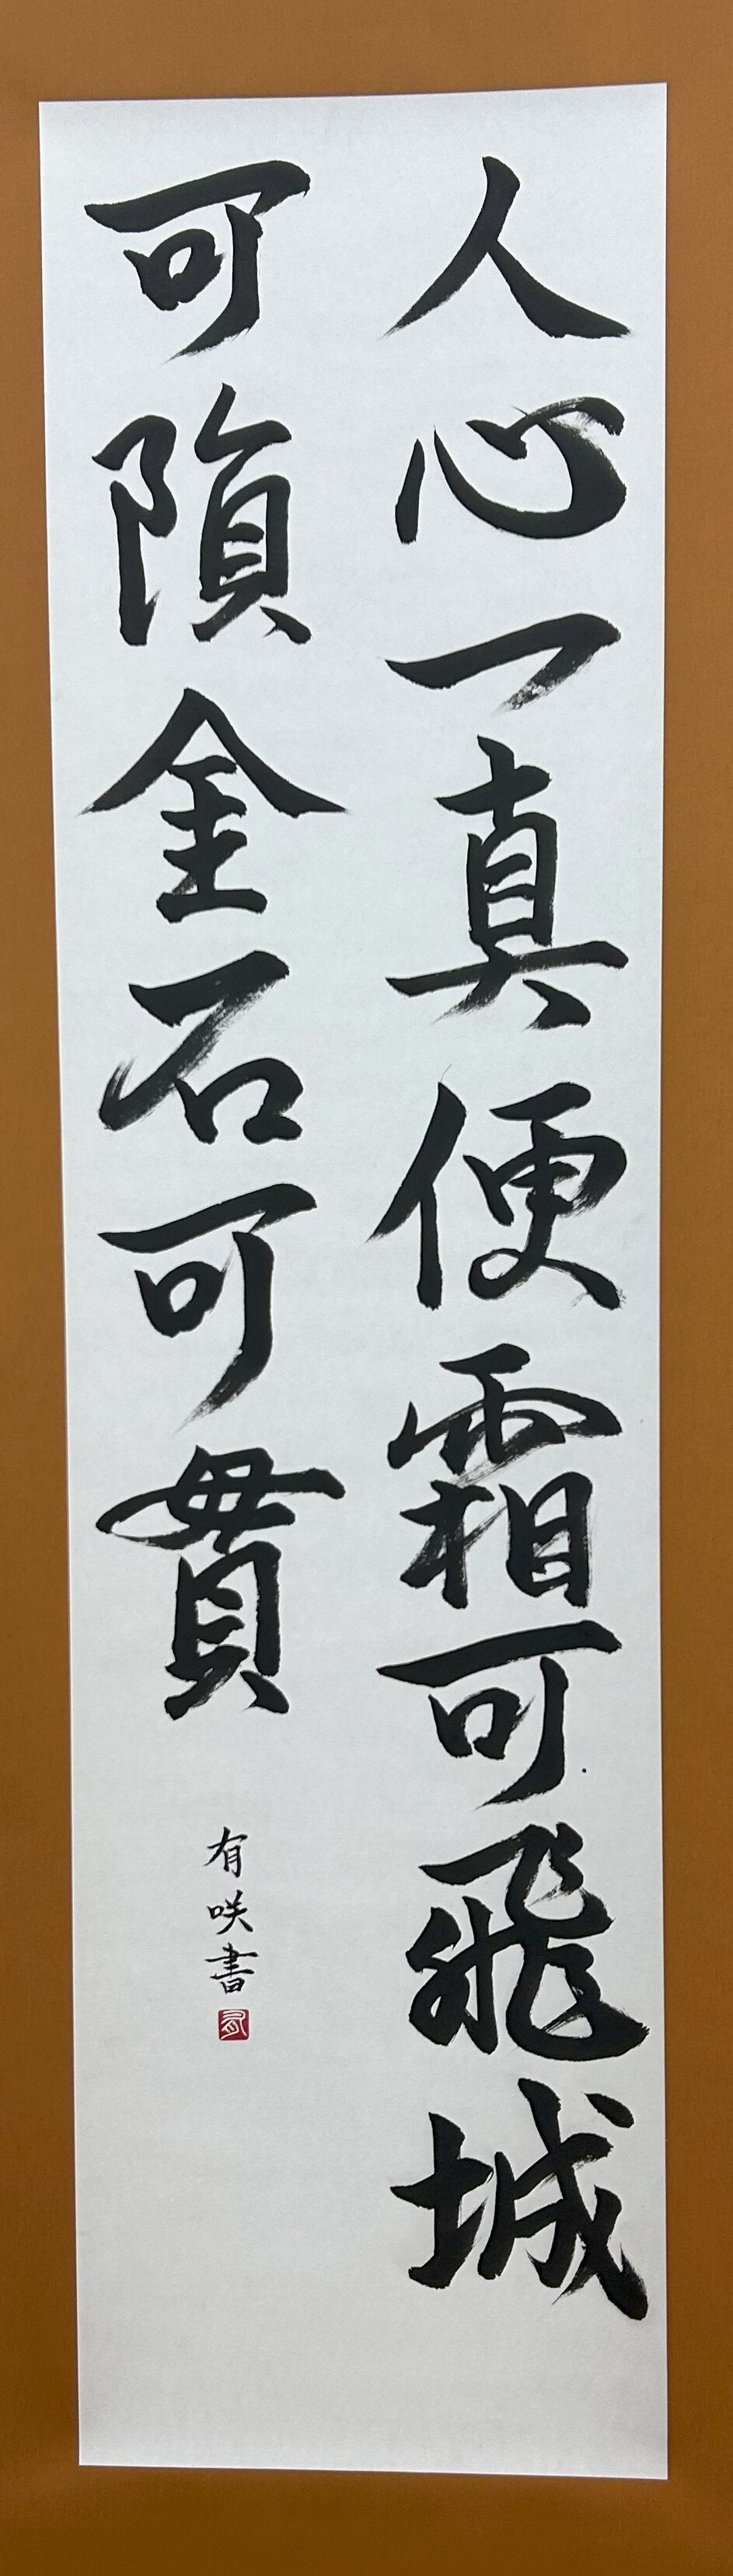 人心一真便霜可飛城
可隕金石可貫
有咲書